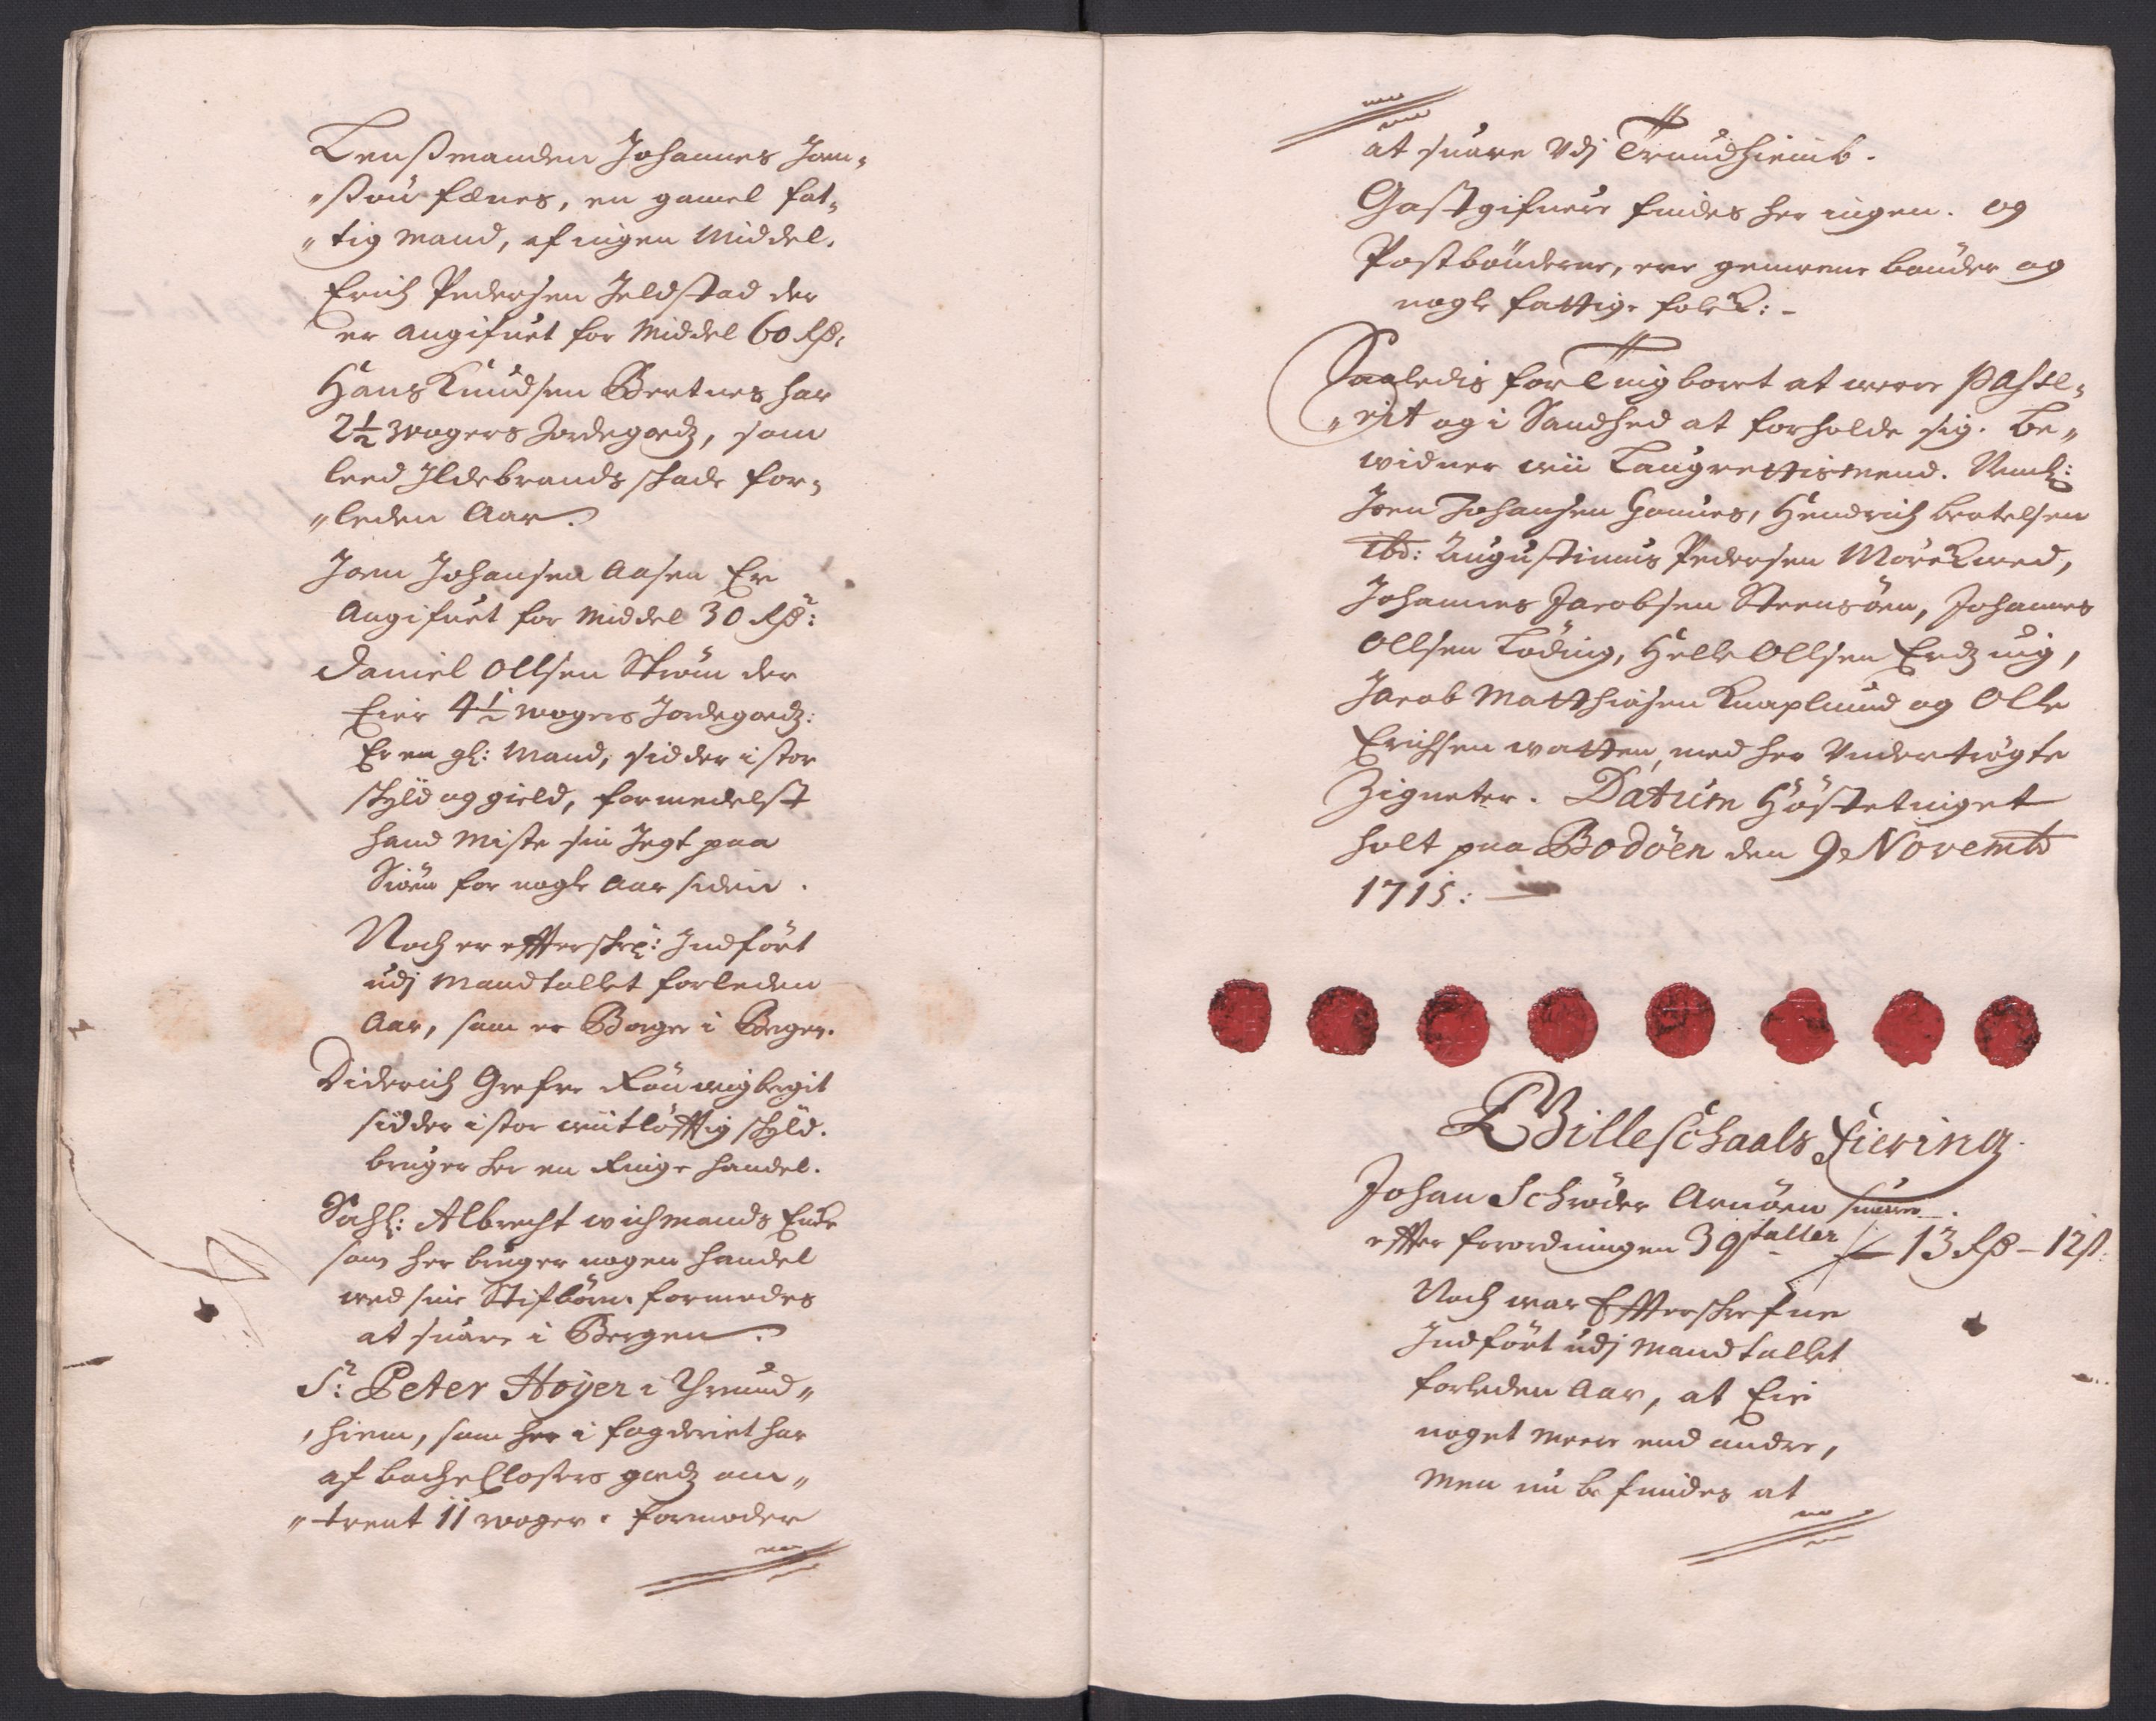 Lensßmanden Johannes Joen„
„ßøn Fenes, en gamel fat„
„tig Mand, af ingen Middel.
Erich Pedersen Jeldstad der
er angifuet for Middel 60 Rd:
Hans Knudsen Bertnes har
2½ wogers Jordegodz, som
leed Jldebrands skade for„
„leden Aar.
Joen Johansen Aasen Er
Angifuet for Middel 30 Rdr:
Daniel Ollsen Strøm der
Eier 4½ wogers Jordegodz:
Er en gl: Mand, sidder i stor
skyld og gield, formedelst
hand Miste sin Jegt paa
Siøen for nogle Aar siden.
Noch er effterskr: Jndført
udj Mandtallet forleden
Aar, som er Borger i Bergen.
Diderich Grefve
sidder i stor wiitløfftig skyld.
bruger her en Ringe handel.
Sahl: Albrecht wichmands Encke
som her bruger nogen handel
med sine Stifbørn. formodes
at suare i Bergen.
Sr: Peter Høyer i Thrund„
„hiem, som her i fogderiet har
af godz om„
„trent 11 woger. formoder
at suare Udj Trundhiemb.
Gastgifuere findes her ingen. og
Postbønderne, ere gemeene bønder og
nogle fattige folck: -
Saaledis for Tingboret at were passe„
„rit og i Sandhed at forholde sig. be„
widner wii Laugrettismend. Neml:
Joen Johansen Hernes, Hendrich bertelsen
ibd: Augustinus Pedersen Mørckued,
Johannes Jacobsen Steensøen, Johannes
Ollsen Løding, Helle Ollsen
Jacob Matthiasen Knaplund og Olle
Erichsen watten, med her Undertrøgte
Zigneter. Datum Høstetinget
holt paa Bodøen den 9de Novemb
1715:
Billeschaals Fiering
Johan Schrøder Arnøen suarer
effter forordningen 39 taller 13 Rd - 12 ß.
Noch war Effterskrefne
Jndført udj Mandtallet
forleden Aar, at Eie
noget meere end andre,
Men nu befindes at